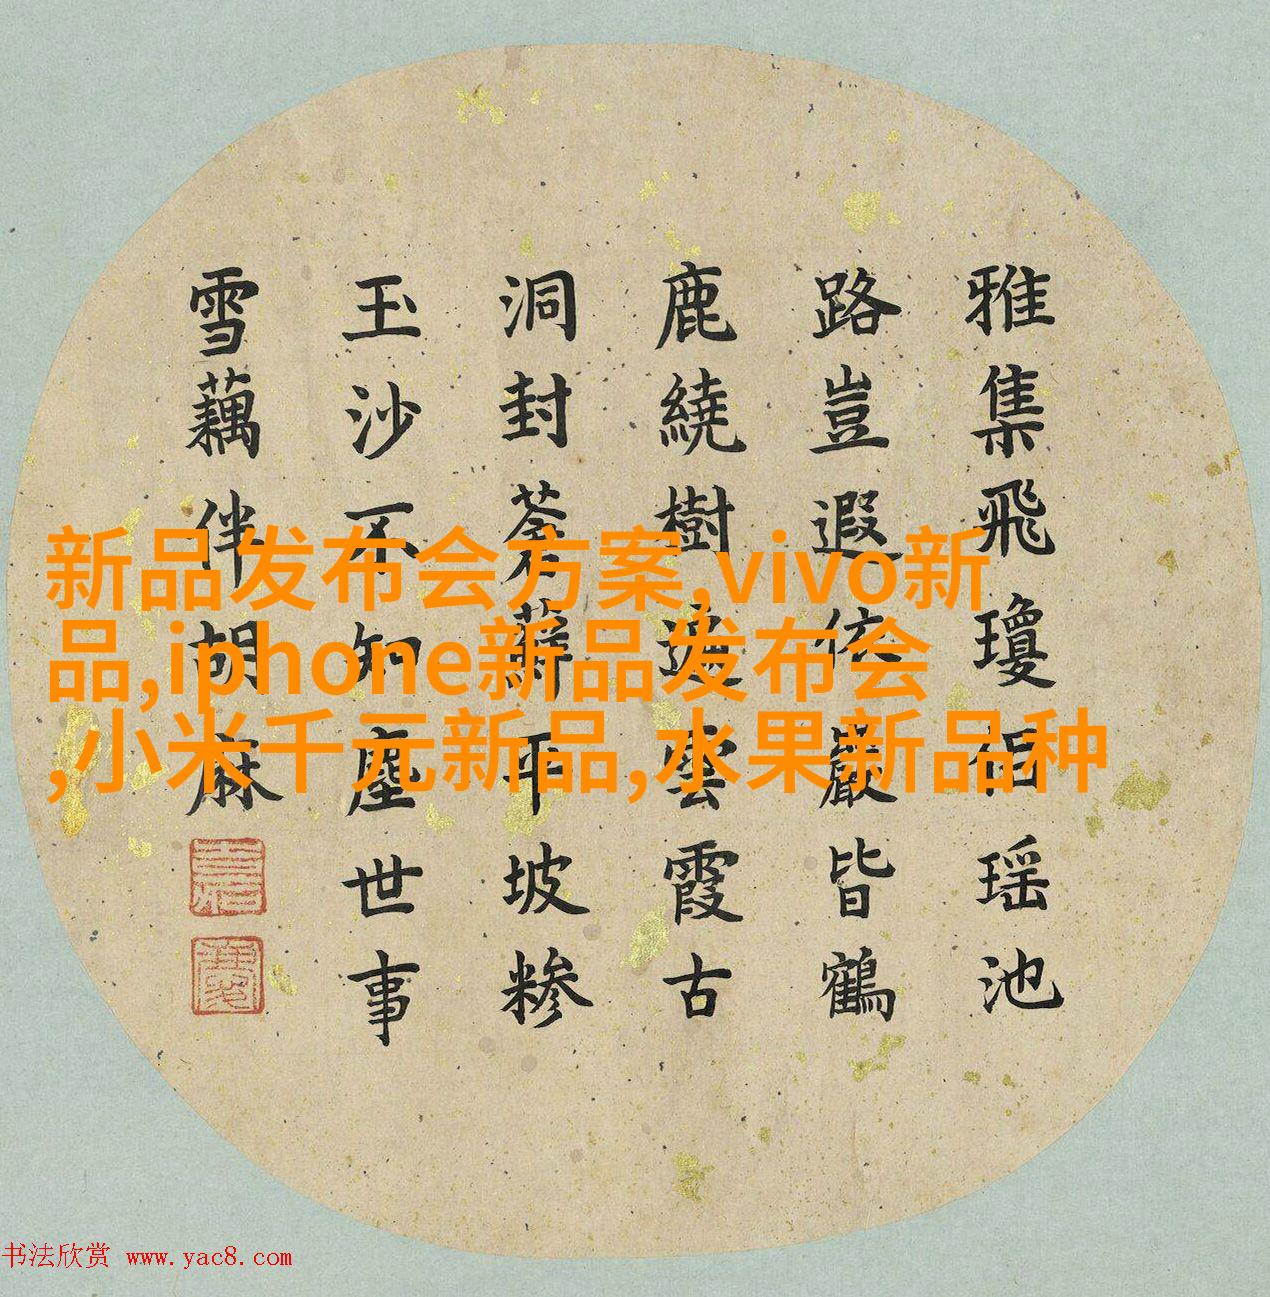 雅集飛瓊侶瑶池
路豈遐依巖皆鶴
鹿繞樹遍雲霞古
洞封蒼蘚平坡糝
玉沙不知塵世事
雪藕伴胡麻
新品发布会方案,vivo新
品,iphone新品发布会
,小米千元新品,水果新品种
书法欣赏 www.yac8.com